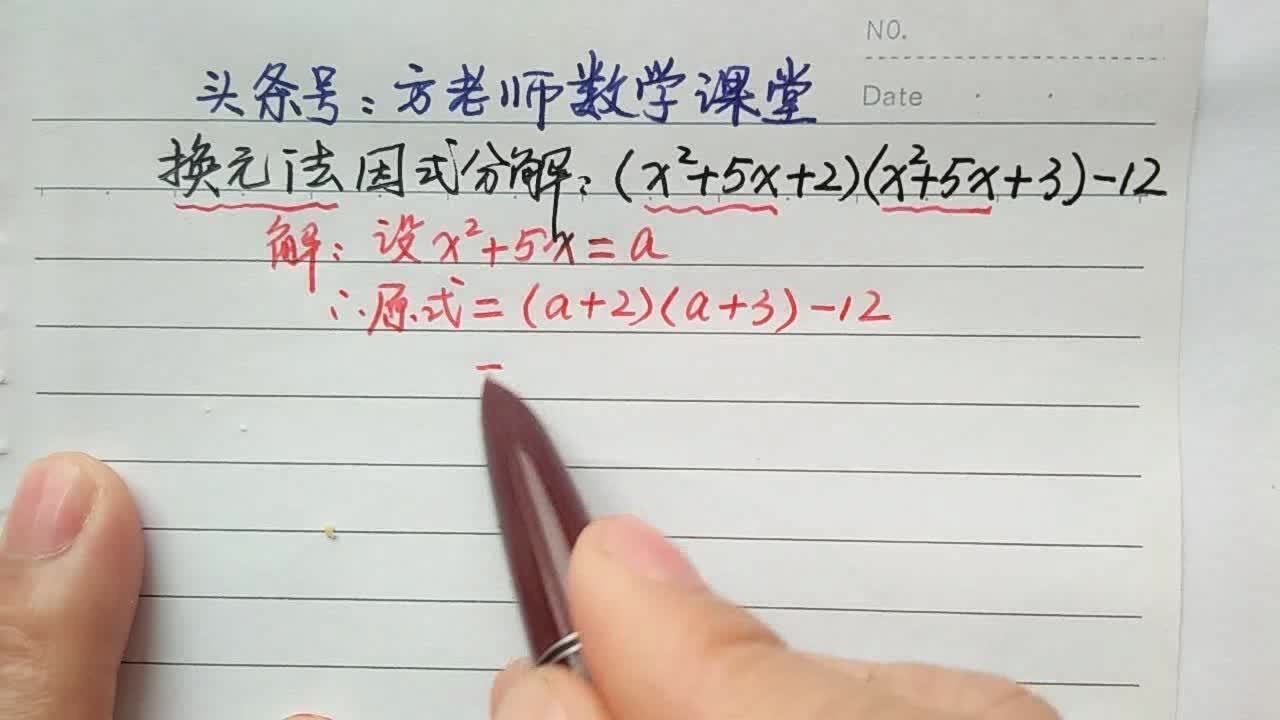 NO.
头条号：方老师数学课堂
Date
换元法因式分解：(x²+5x+2)(x²+5x+3)-12
解：设x²+5x=a
∴原式=(a+2)(a+3)-12